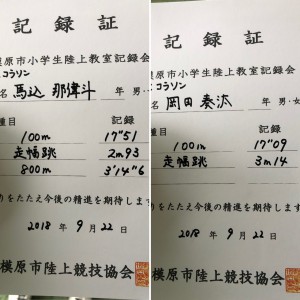 記録証
模原市小学生陸上教室記録会
コラソン
名 馬込 那偉斗 年 男
種目 記録
100m 17"51
走幅跳 2m93
800m 3'14"6
りをたたえ今後の精進を期待しま
2018年9月22日
模原市陸上競技協会
記録証
模原市小学生陸上教室記録会
コラソン
名 岡田 奏汰 年 男・女
種目 記録
100m 17"09
走幅跳 3m14
りをたたえ今後の精進を期待します
2018年9月22日
模原市陸上競技協会